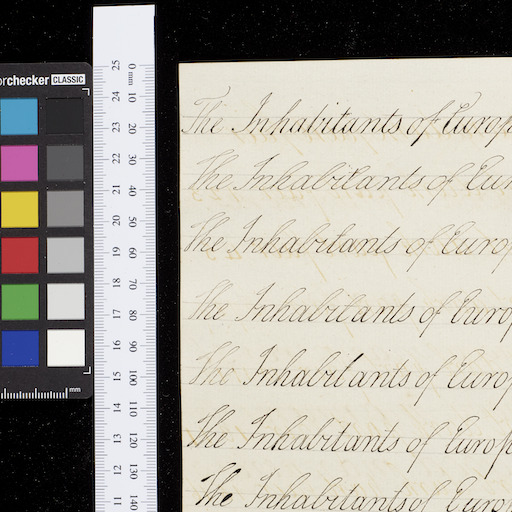 orchecker CLASSIC
mm
25 24 23 22 21 20 19 18 17 16 15 14 13 12 11
0 mm 10 20 30 40 50 60 70 80 90 100 110 120 130 140
The Inhabitants of Europ
The Inhabitants of Eur
The Inhabitants of Europ
The Inhabitants of Europ
The Inhabitants of Europ
The Inhabitants of Europ
The Inhabitants of Europ